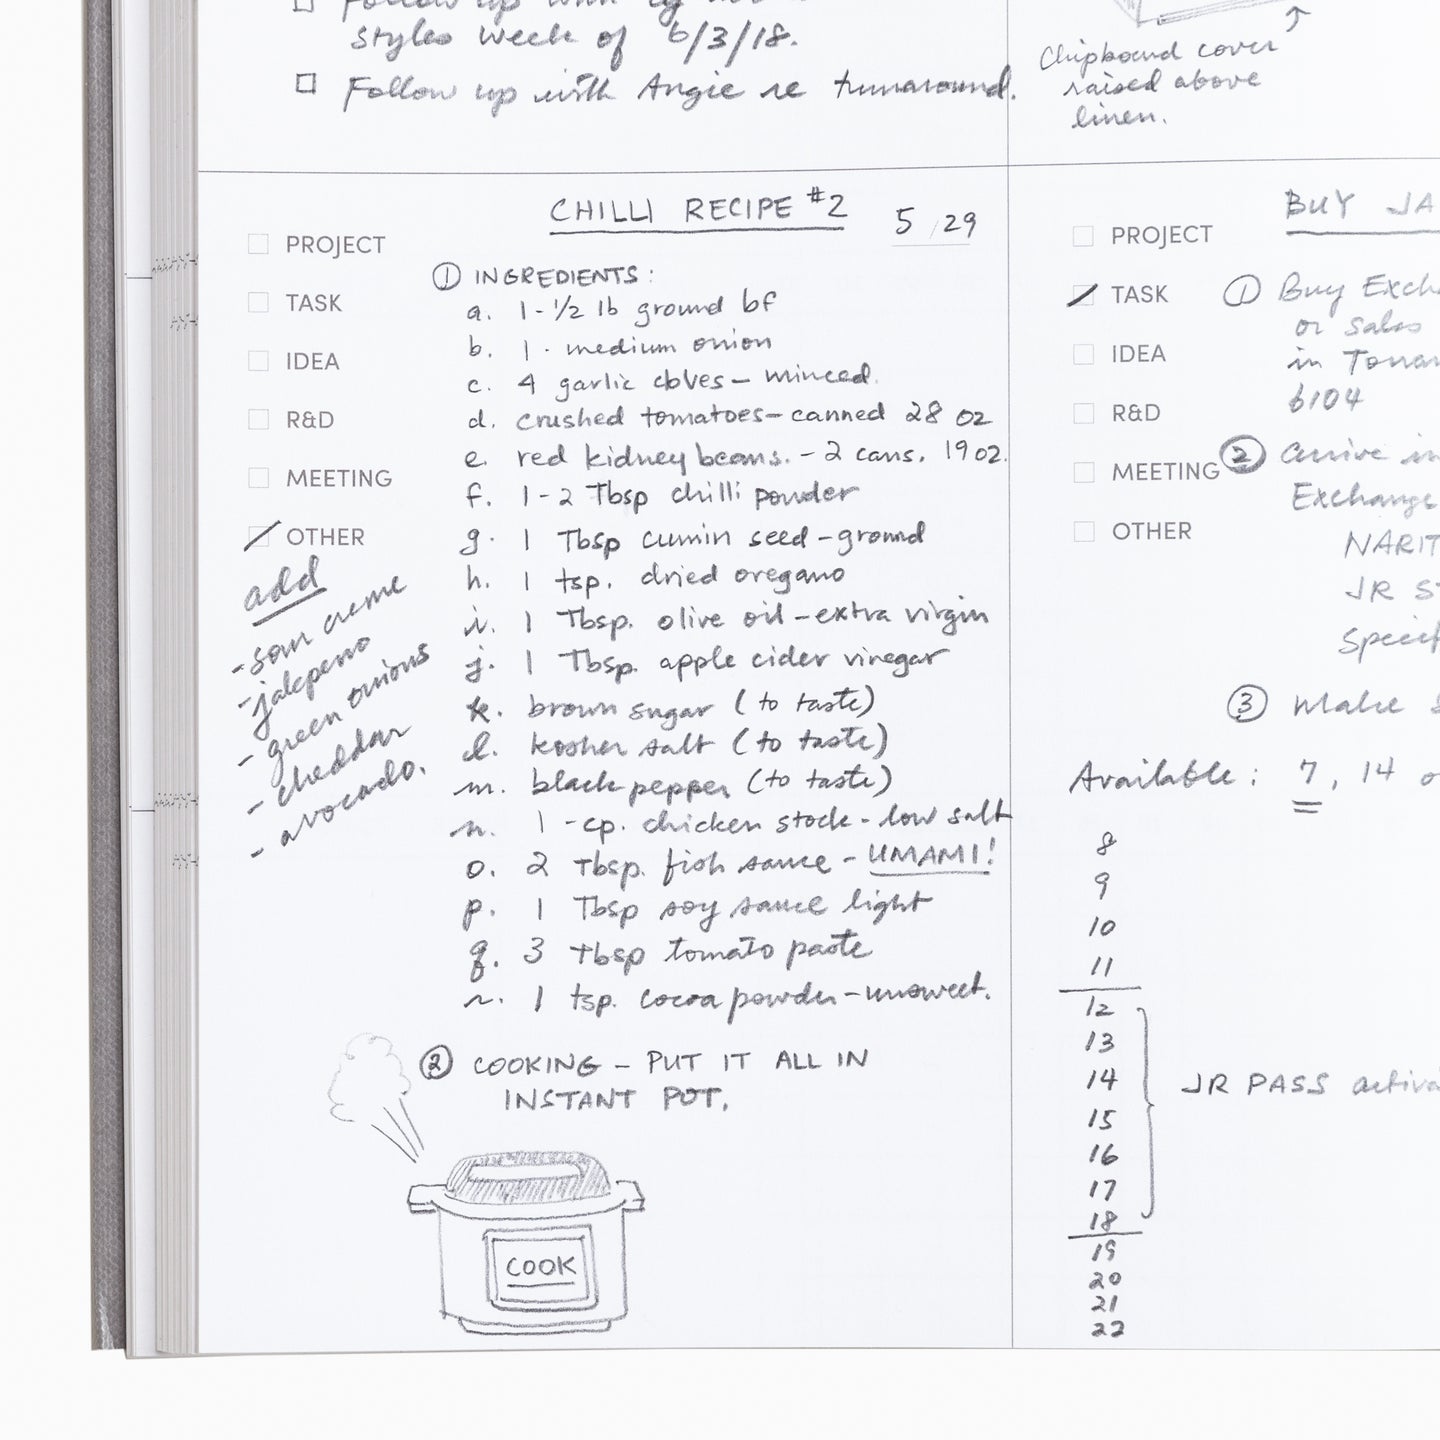 Follow up with
styles week of 6/3/18.
□ Follow up with Angie re turnaround.
Chipboard cover
raised above
linen.
CHILLI RECIPE #2
5/29
PROJECT
TASK
IDEA
R&D
MEETING
OTHER
add
- sour creme
- jalepeno
- green onions
- cheddar
- avocado.
① INGREDIENTS:
a. 1-1/2 lb ground bf
b. 1 - medium onion
c. 4 garlic cloves - minced.
d. crushed tomatoes - canned 28 oz
e. red kidney beans. - 2 cans. 19oz.
f. 1-2 Tbsp chilli powder
g. 1 Tbsp cumin seed - ground
h. 1 tsp. dried oregano
i. 1 Tbsp. olive oil - extra virgin
j. 1 Tbsp. apple cider vinegar
k. brown sugar (to taste)
l. kosher salt (to taste)
m. black pepper (to taste)
n. 1 - cp. chicken stock - low salt
o. 2 Tbsp. fish sauce - UMAMI!
p. 1 Tbsp soy sauce light
q. 3 Tbsp tomato paste
r. 1 tsp. cocoa powder - unsweet.
② COOKING - PUT IT ALL IN
INSTANT POT.
COOK
BUY JA
PROJECT
TASK
IDEA
R&D
MEETING
OTHER
① Buy Exch
or sales
in
6104
② arrive in
Exchange
NARIT
JR S
Specif
③ Make
Available: 7, 14 o
8
9
10
11
12
13
14
15
16
17
18
19
20
21
22
JR PASS activa